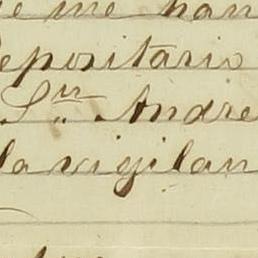 e me han
epositario
Sn. Andre
la vigilan